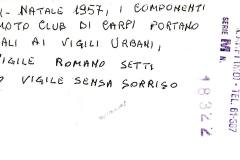 - NATALE 1957, I COMPONENTI
MOTO CLUB DI CARPI PORTANO
ALI AI VIGILI URBANI,
VIGILE ROMANO SETTI
O VIGILE SENSA SORRISO
TEL. 61-567
SERIE M N.
18322